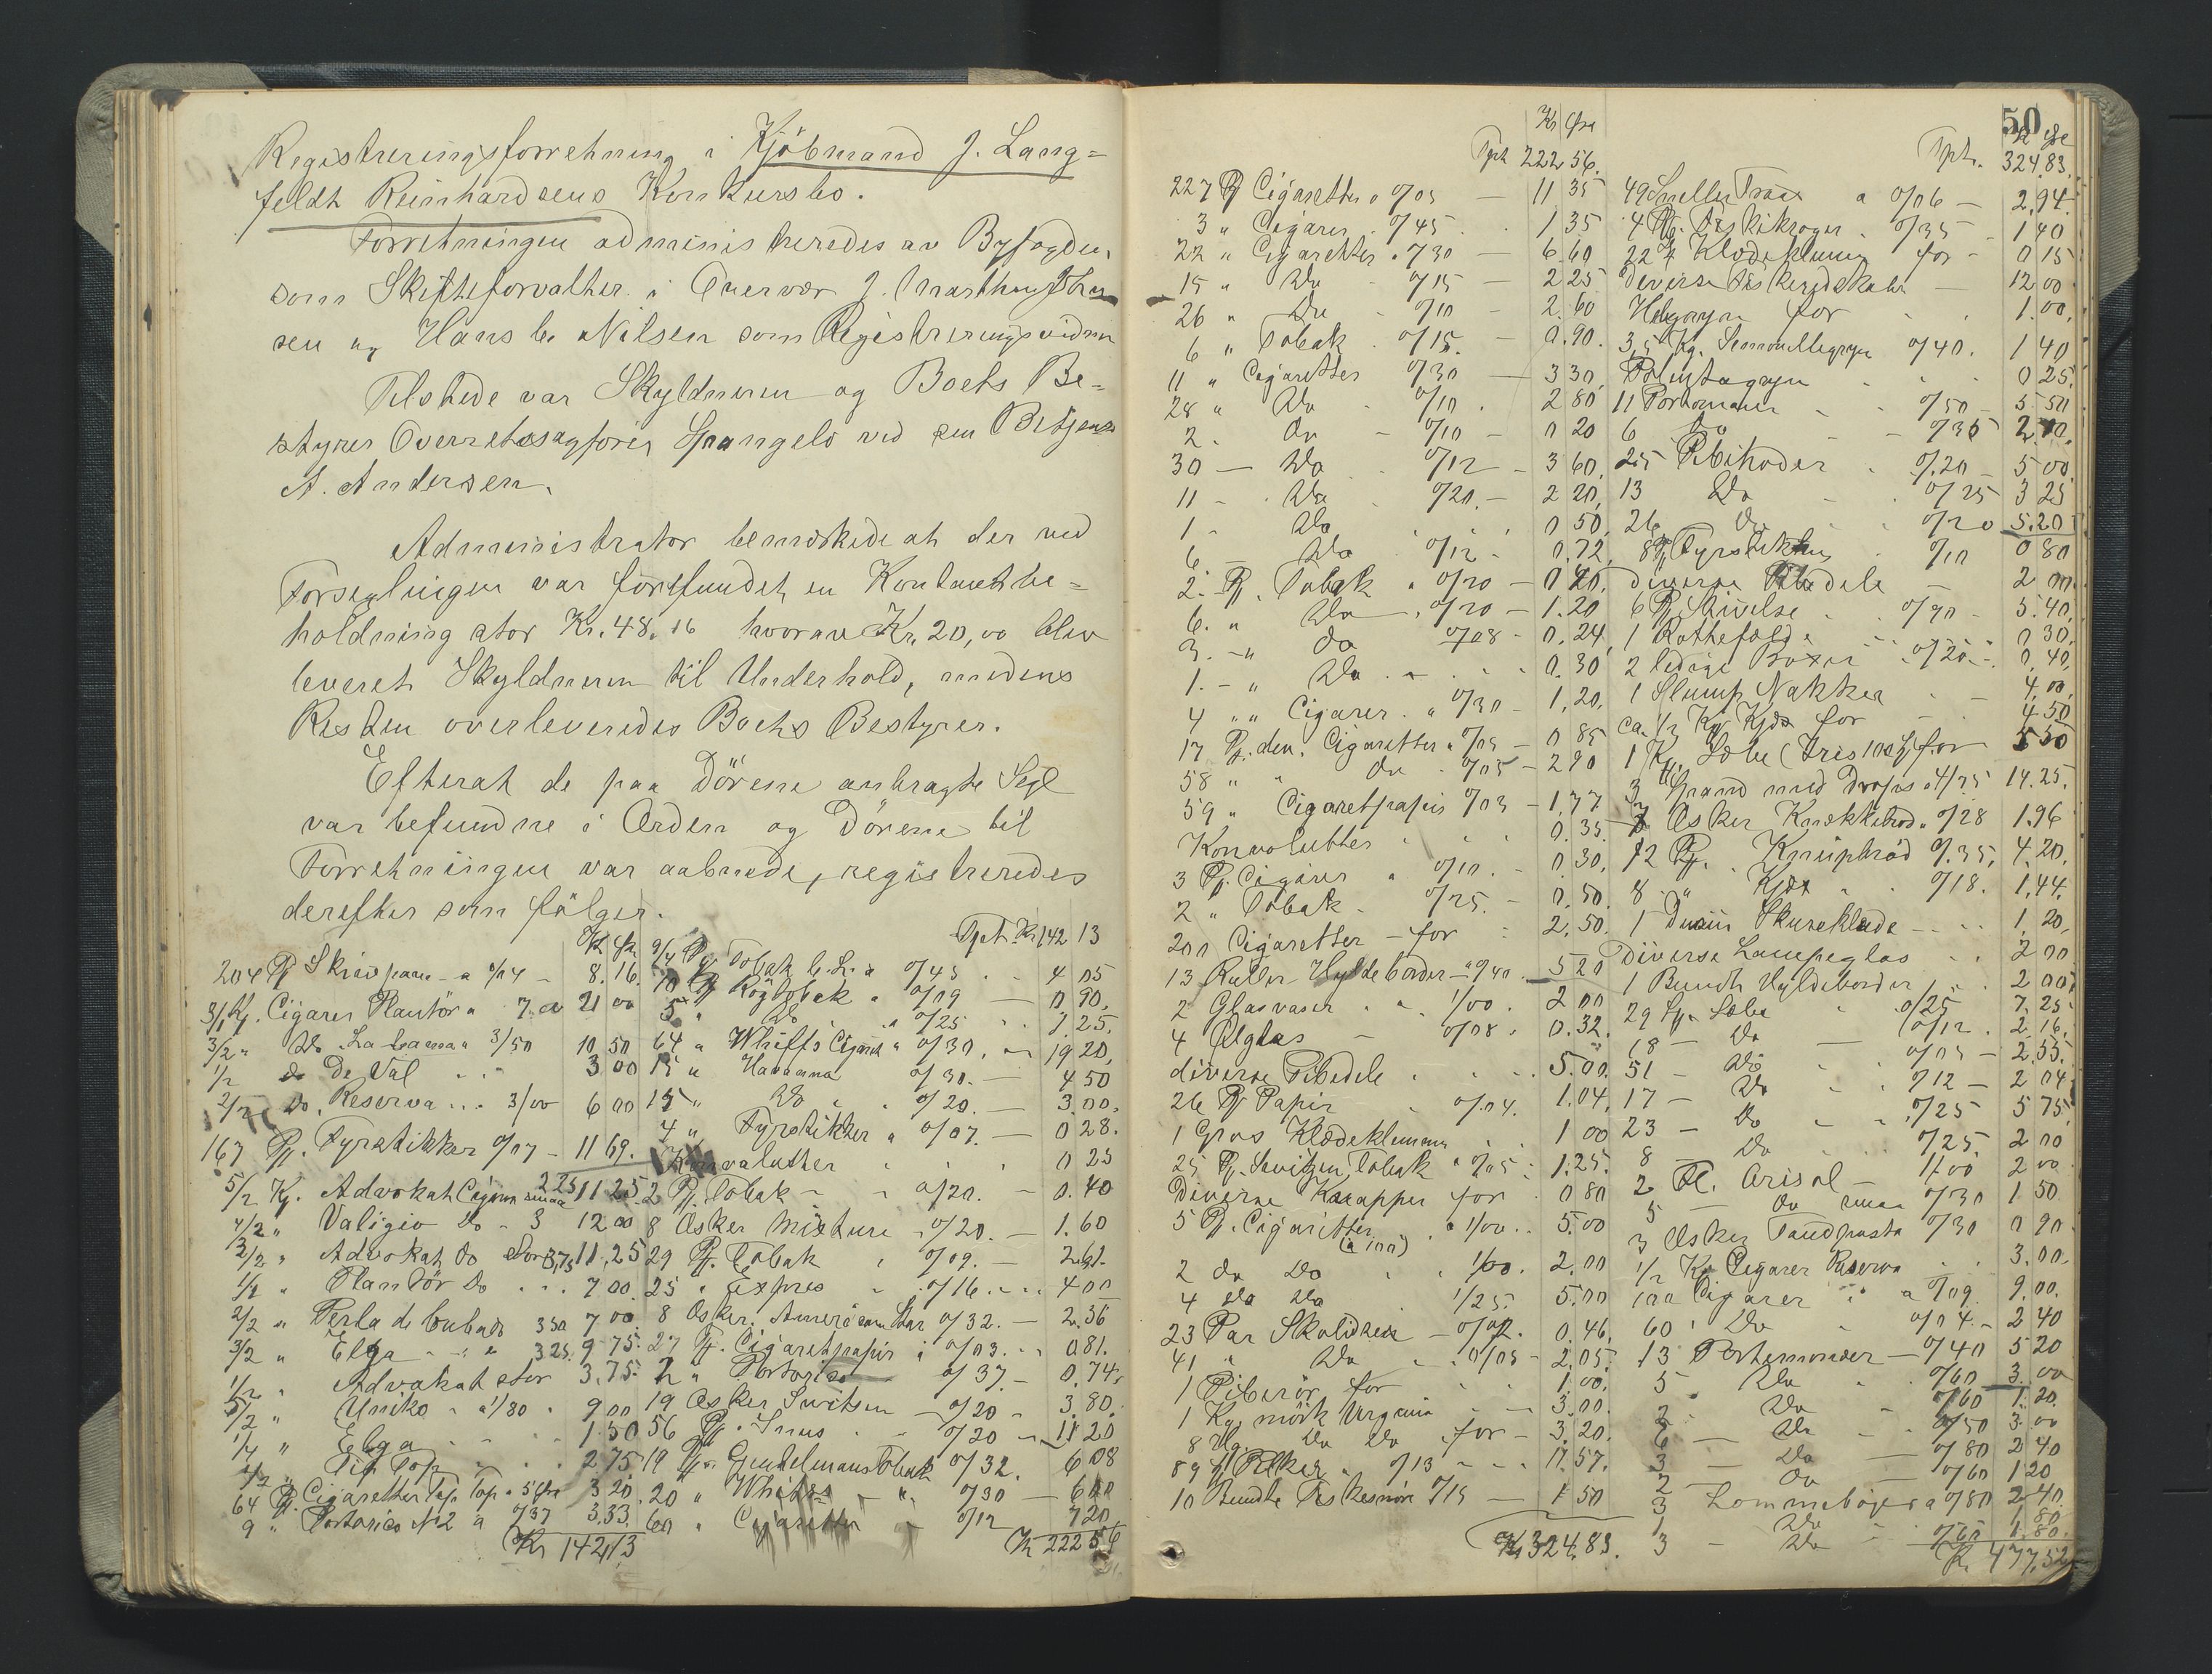 Registreringsforretning i Kjöbmand J. Lang=
feldt Reinhardsens Konkursbo.
Forretningen administreredes av Byfogden
som Skifteforvalter i Overvær J.
sen og Hans Nilsen som Registreringsvidner
Tilstede var Skyldneren og Boets Be=
styrer Overretssagförer Spangelo ved sen Betjent
A. Andersen.
Administrator bemærkede at der ved
Forseglingen var forefundet en Kontantbe=
holdning stor Kr. 48.16 hvorav Kr. 20,00 blev
leveret Skyldneren til Underhold, medens
Resten overleveredes Boets Bestyrer.
Efterat de paa Dörene anbragte Segl
var befundne i Orden og Dörene til
Forretningen var aabnede, registreredes
derefter som fölger.
Kr Ør
204 Pk Skrivpapir a 0/04 - 8.16.
3/1 Kg. Cigarer Plantör a 7.00 21 00
3/2 " Do La Larana 3/50 10 50
1/2 do De Val 3 00
2/2 Do. Reserva ... 3/00 6 00
167 Pk. Fyrstikker 0/07 - 11 69.
5/2 Kg. Advokat Cigarer smaa 2 25 11 25
4/2 " Valigio Do - 3 12 00
3/2 " Advokat do stor 3,75 11,25
1/2 " Plantör Do ... 7 00
2/2 " Perla de Cubado 350 7 00
3/2 " Elga 3 25 9 75
1/2 " Advokat stor 3.75
5/2 " Uniko a 1/80 9 00
1/4 " Elga 1.50
1/2 " Tip Top 2 75
64 Pk. Cigaretter Tip Top a 5 Øre 3 20
9 " Portorico No 2 a 0/37 3.33.
Kr 142,13
Tpt. Kr 142 13
9/4 Kg Tobak a 0/45 4 05
10 Pk Rögtobak a 0/09 0 90.
5 " Do a 0/25 1.25.
64 " Whiffs Cigaret a 0/30 19 20,
15 " Havanna 0/30. 4 50
15 " Do 0/20. 3.00.
4 " Fyrstikker a 0/07. 0 28.
Konvolutter 0 25
2 Pk. Tobak 0/20. 0.40
8 Æsker Mixture 0/20. 1.60
29 Pk. Tobak 0/09. 2.61.
25 " Expres 0/16 4 00
8 Æsker American Star 0/32. 2.56
27 Pk. Cigaretpapir a 0/03 0 81.
2 " Portorico 0/37. 0.74
19 Æsker Switsen 0/20 3,80.
56 Pk. Snus 0/20 11 20
19 Pk. Gentelmans Tobak 0/32. 6 08
20 " Whites 0/30 6 00
60 " Cigaretter 0/12 7 20
Kr 222 56
Kr Øre
Tpt 222 56.
227 Pk Cigaretter a 0/05 11 35
3 " Cigarer 0/45 1 35
22 " Cigaretter a 0/30 6.60
15 " Do 0/15 2 25
26 " Do 0/10 2.60
6 " Tobak 0/15. 0.90.
11 " Cigaretter 0/30 3 30
28 " Do 0/10 2 80
2. Do 0/10 0 20
30 Do 0/12 3 60
11 Do 0/20. 2 20
1 Do 0 50
6 Do 0/12 0,72
2. Pk. Tobak 0/20 0 40,
6. " Do 0/20 1.20
3. " do 0/08 0.24
1. " Do 0.30
4 " Cigarer a 0/30 1,20,
17 Pk. div. Cigaretter a 0/05 0 85
58 " do 0/05 2 90
59 " Cigaretpapir 0/03 1,77.
Konvolutter 0.35
3 Pk. Cigarer a 0/10 0.30,
2 " Tobak 0/25. 0,50.
200 Cigaretter for 2,50.
13 Ruller Hyldeborder a 0/40 5 20
2 Glasvaser 1/00 2 00
4 Ølglas 0/08 0.32.
diverse Pibedele 5.00.
26 Pk Papir 0/04. 1.04,
1 Gros Klædeklemmer 1 00
25 Pk. Switzen Tobak a 0/05 1.25.
Diverse Knapper for 0 80
5 Pk. Cigaretter (a 100) a 1/00 5.00
2 do Do 1/00. 2.00
4 do Do 1/25. 5.00
23 Par Skolidser 0/02. 0.46,
41 " Do 0/05 2,05.
1 Piberör for 1.00.
1 Kg mörk Virginia 3.00.
8 Hg. Do Do for 3,20.
89 11.57.
10 Bundte Fiskesnöre 0/15 1 50
Kr 324.83.
50
Kr Øre
Tpt. 324,83.
49 Sneller Traad a 0/06 2,94.
4 Fiskekroger 0/35 1 40
Klædeklemmer for 0 15
Diverse Fiskeredskaber 12 00
Havregryn for 1.00.
3,5 Kg. Semoullegryn 0/40. 1 40
0 25.
11 Portemonær 0/50 5 50
6 Do 0/35 2 10,
25 Pibehoder 0/20 5 00
13 Do 0/25 3 25
26 Do 0/20 5.20
8 Pk Fyrstikker 0/10 0 80
diverse Pibedele 2 00.
6 Pk Stivelse 0/90 5.40,
1 Rottefælde 0 30.
2 ledige Boxer 0/20 0,40,
1 Slump Nakker 4,00,
ca. 1/2 Kg Kjæx for 4 50
1 Ks. Sæbe (Iris 100 Stk) for 5 50
3 Spand med Drops a 4/75 14.25.
7 Æsker Knækkebrød a 0/28 1.96
12 Pk. Knipbrød 0/35, 4.20,
8 " Kjæx 0/18. 1,44.
1 Dusin Skureklude 1,20,
Diverse Lampeglas 2 00
1 Bundt Hyldeborder 2 00,
29 Stk. Sæbe 0/25 7.25
18 Do 0/12. 2.16.
51 Do 0/05 2,55.
17 Do 0/12 2 04
23 Do 0/25 5 75
8 Do 0/25. 2 00
2 Fl. Arisol 1/00 2 00
5 do smaa 0/30 1 50
3 Æsker Tandpasta 0/30 0 90
1/2 Ks Cigarer Reserva 3.00.
100 Cigarer a 0/09. 9.00.
60 " Do 0/04. 2 40
13 Portemonæer 0/40 5 20
5 Do 0/60 3.00
2 Do 0/60 1.20.
6 Do 0/50 3.00
3 Do 0/80 2 40
2 Do 0/60 1 20
3 Lommebøger a 0/80 2 40.
1 Do 1 80
3 Do 0/60 1.80.
Kr 477,52